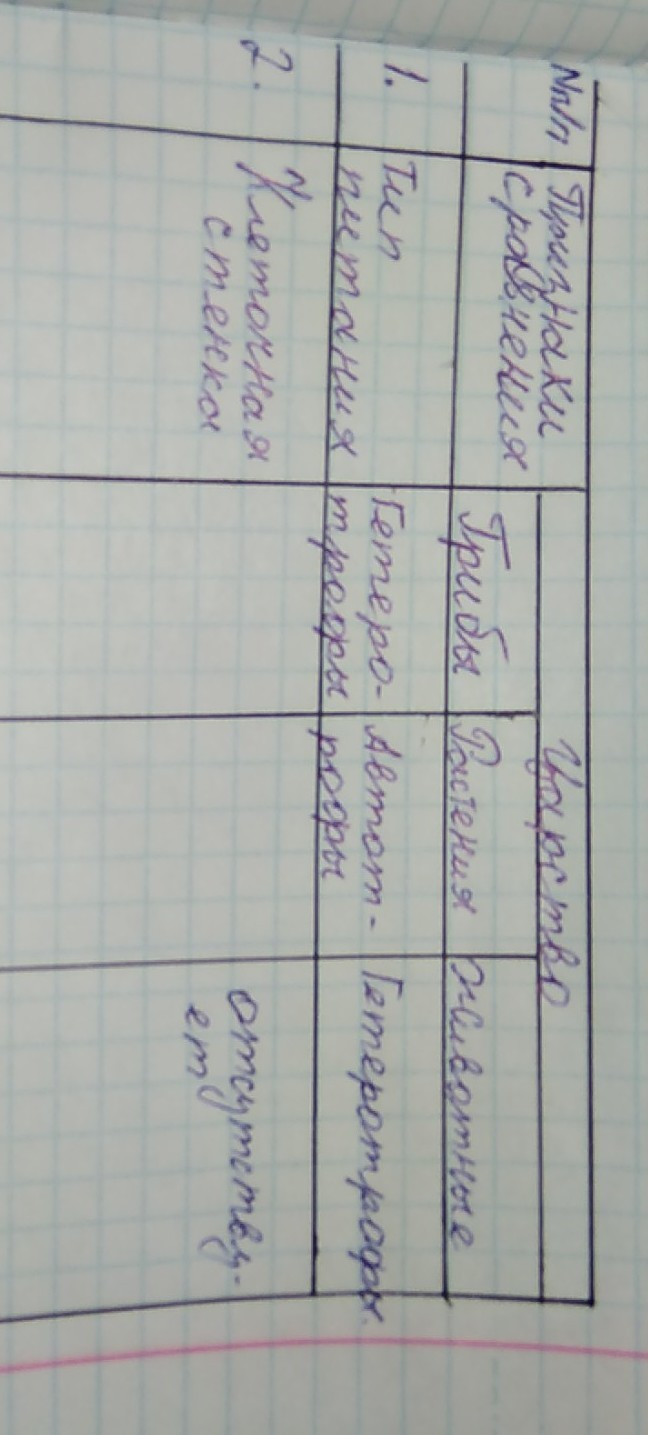 №п/п Признаки Царство
сравнения Грибы Растения Животные
1. Тип Гетеро- Автот- Гетеротрофы.
питания трофы рофы
2. Клеточная отсутству-
стенка ет